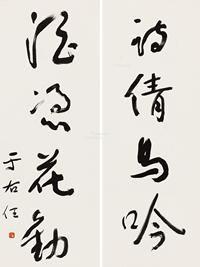 詩倩鳥吟
酒憑花勸
于右任